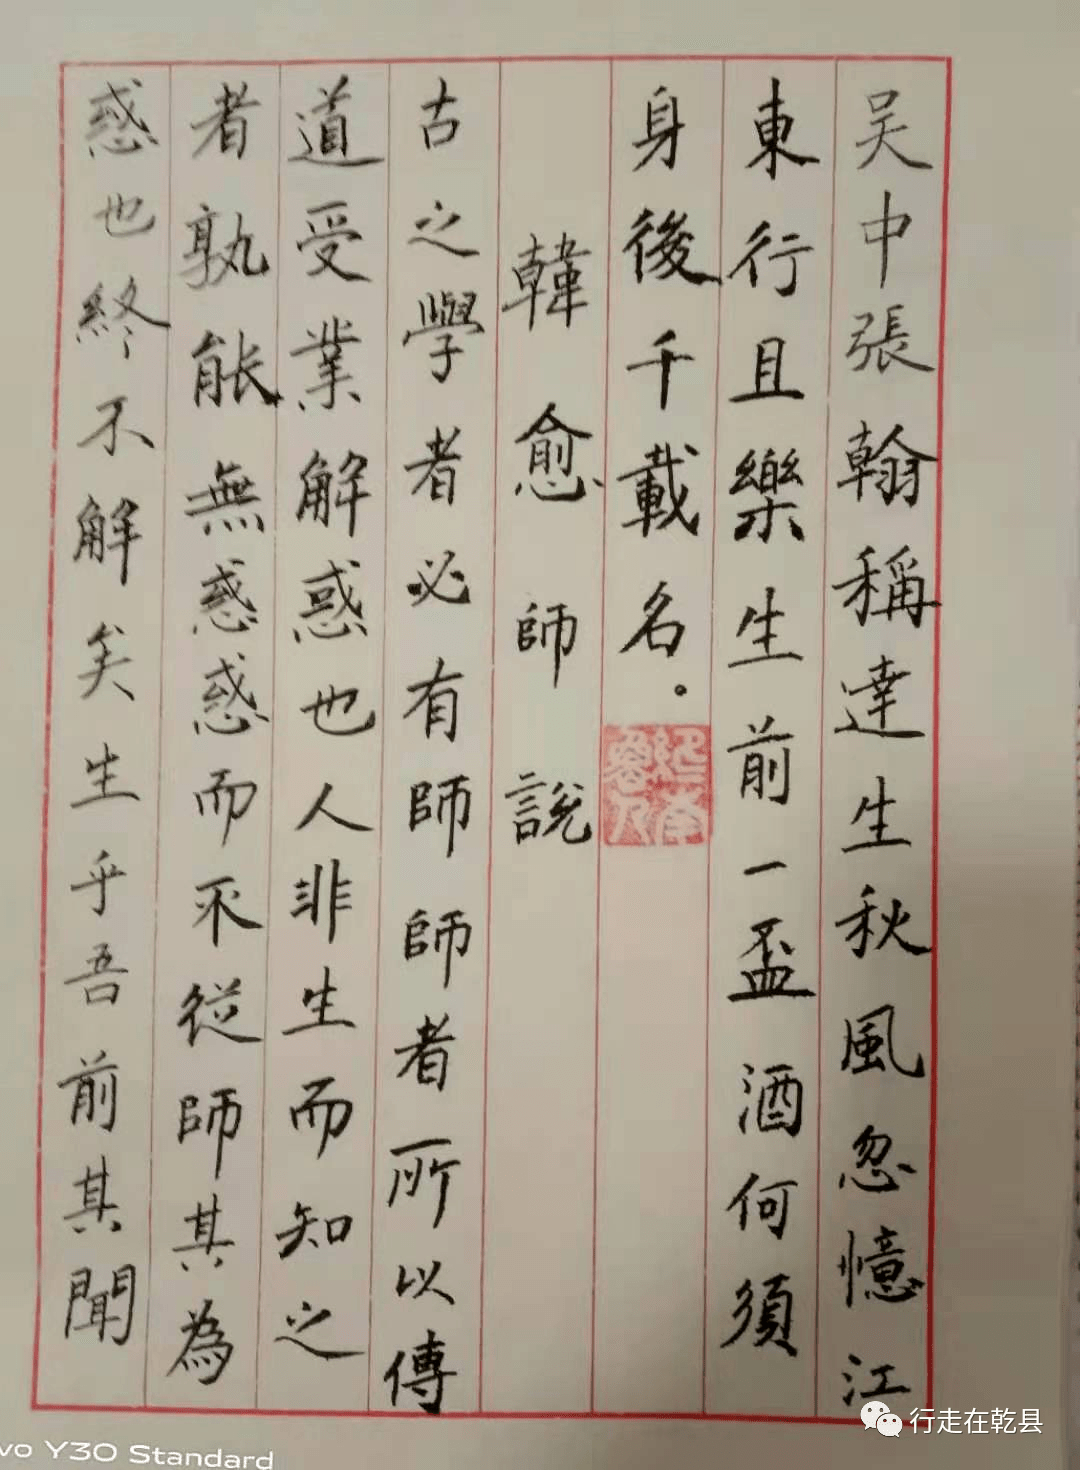 吴中張翰稱達生秋風忽憶江
東行且樂生前一盃酒何須
身後千載名。
韓愈師說
古之學者必有師師者所以傳
道受業解惑也人非生而知之
者孰能無惑惑而不從師其為
惑也終不解矣生乎吾前其聞
行走在乾县
vo Y30 Standard